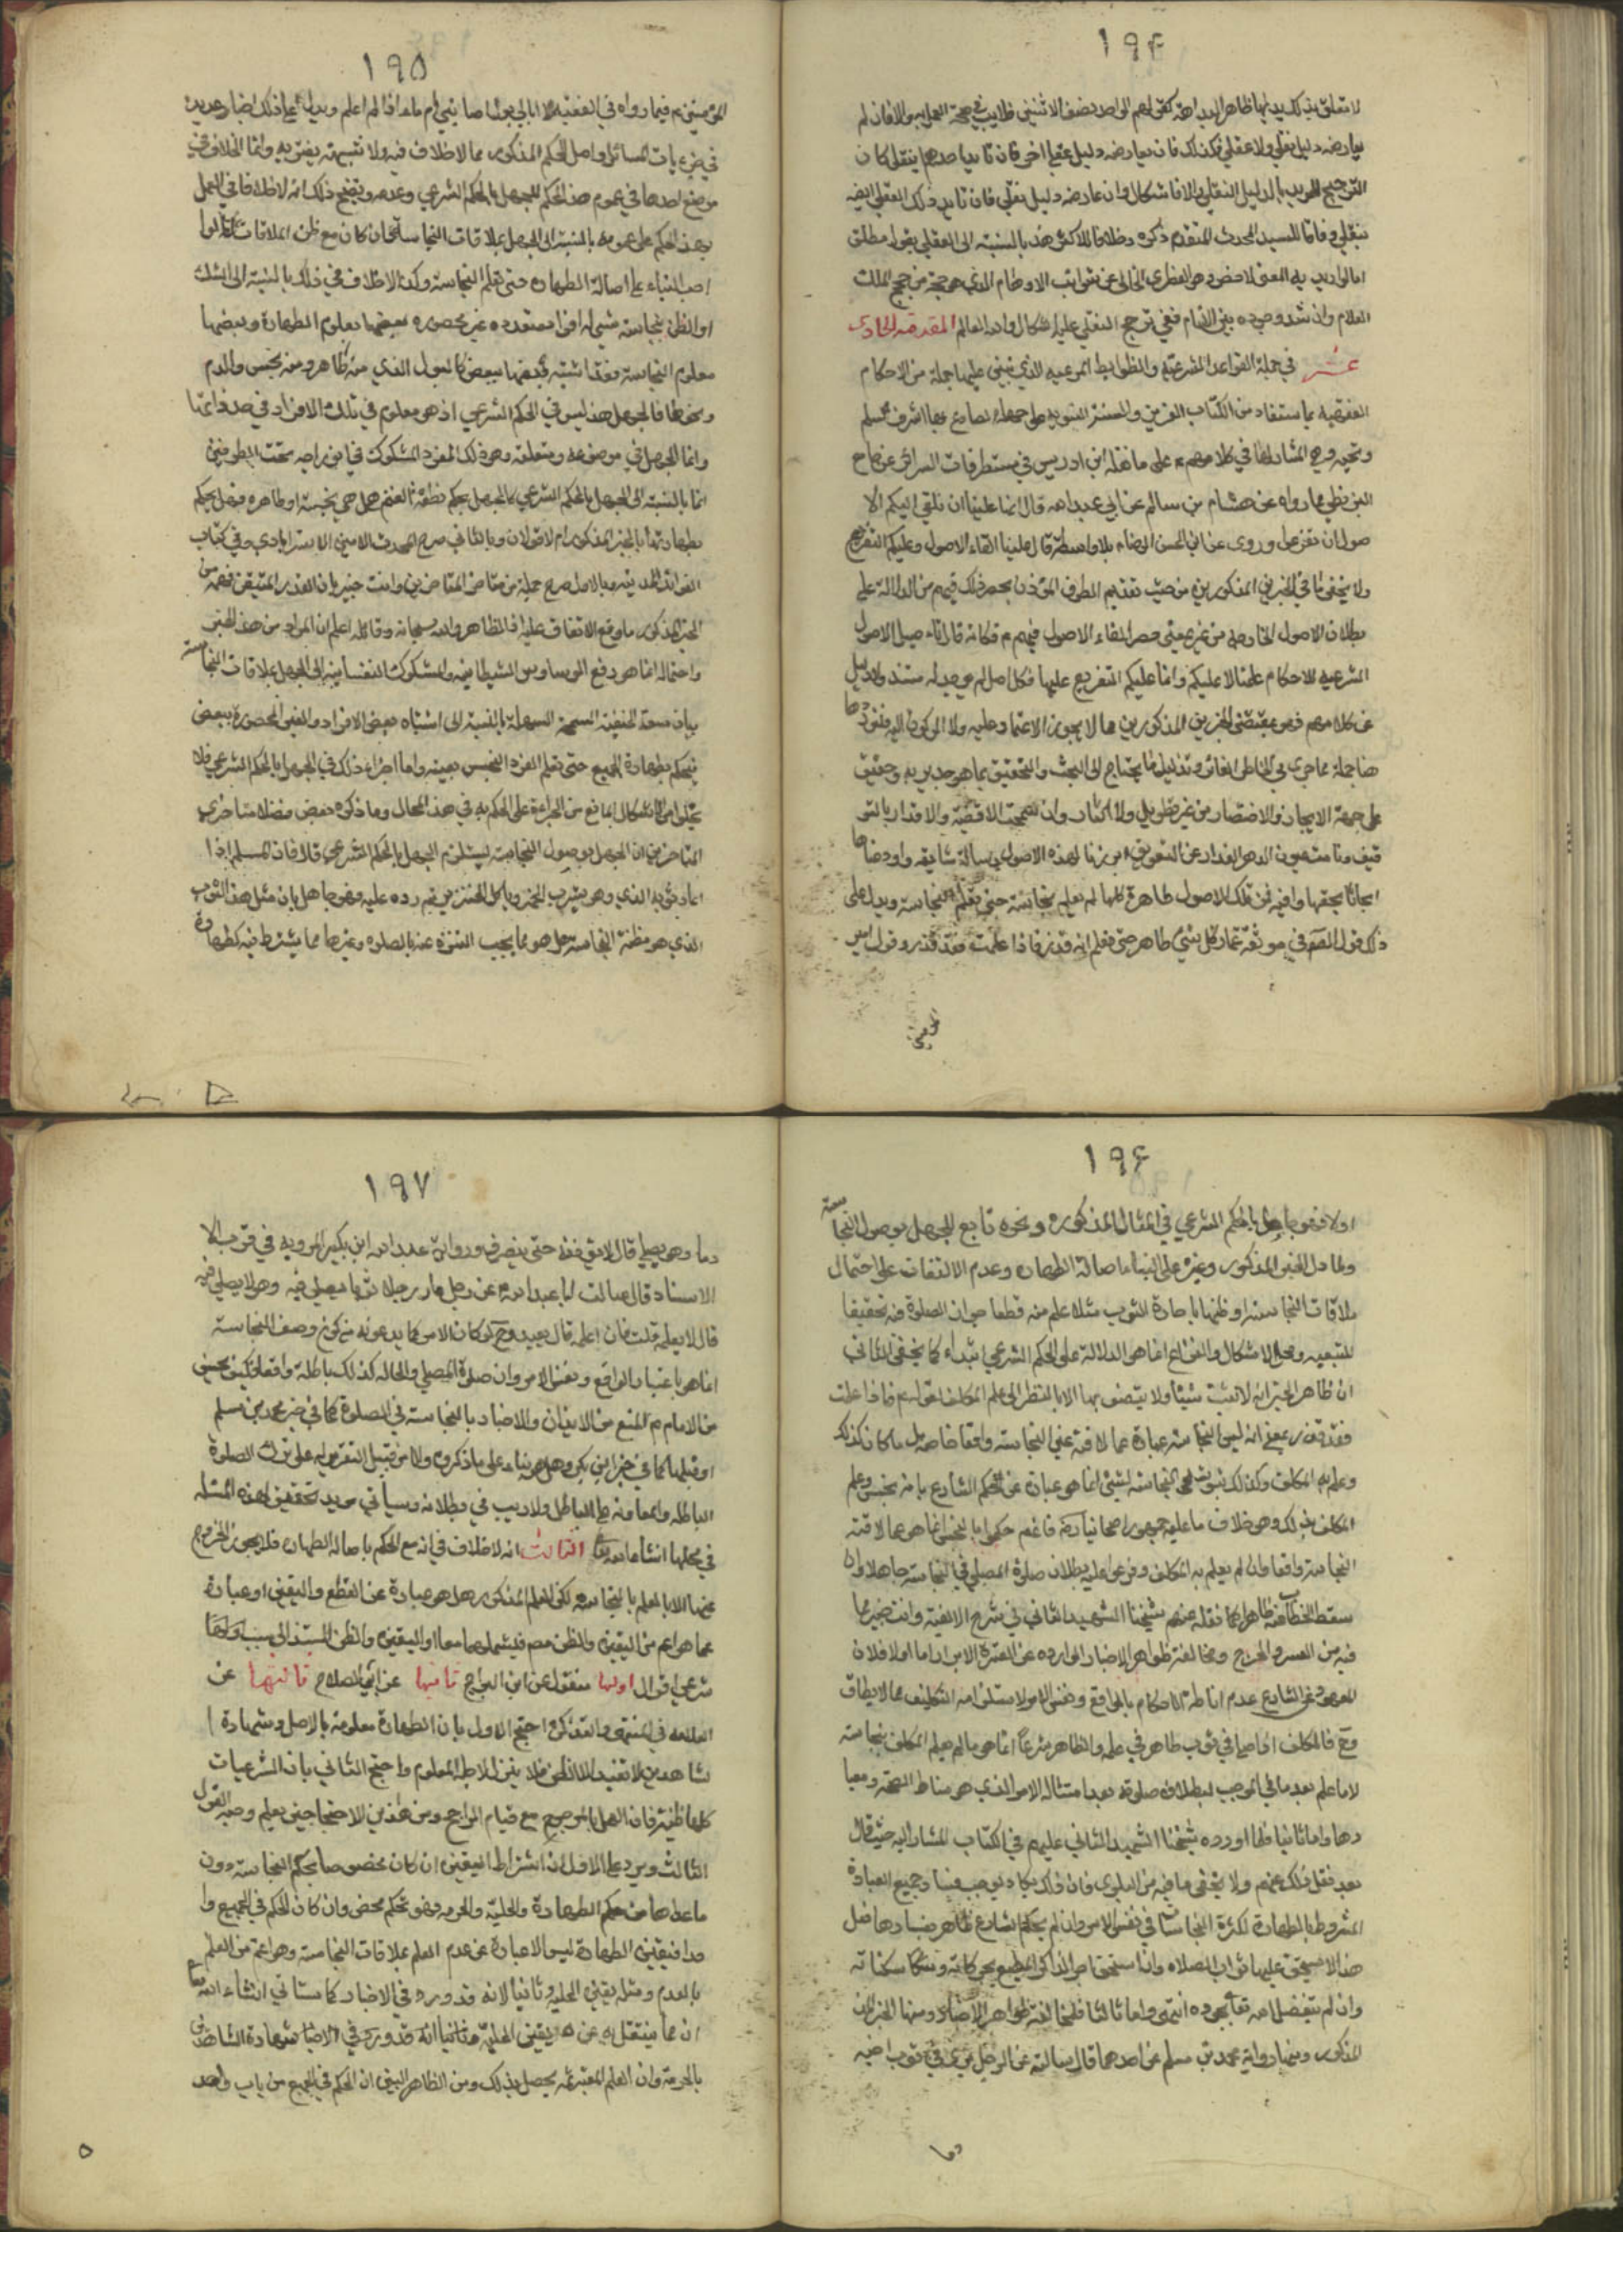 ۱۹۴
لا تتعلق بذلك بديهيا ظاهر البداهة كقولهم الواحد نصف الاثنين فلا ريب في صحة العمل به والا فان لم
يعارضه دليل نقلي ولا عقلي فكذلك فان عارضه دليل عقلي اخر فان تايد احدهما بنقلي كان
الترجيح للمؤيد بالدليل النقلي والا فاشكال وان عارضه دليل نقلي فان تايد ذلك العقلي ايضا
بنقلي للسيد المحدث المتقدم ذكره وخلافا للاكثر هذا بالنسبة الى العقلي بقول مطلق
اما لو اريد به المعنى الاخص وهو الفطري الخالي عن شوائب الاوهام الذي هو حجة من حجج الملك
العلام وان شذ وجوده بين الانام ففي ترجيح النقلي عليه اشكال والله العالم المقدمة الحادى
عشر في جملة القواعد الشرعية والضوابط المرعية الذي تبنى عليها جملة من الاحكام
الفقهية مما استفاد من الكتاب العزيز والسنة النبوية على الصادع بها اشرف سلم
وتحية وهي المشار اليها في كلامهم ع على ما نقله ابن ادريس في مستطرفات السرائر عن جامع
البزنطي مما رواه عن هشام بن سالم عن ابي عبد الله قال انما علينا ان نلقي اليكم الا
صول ان تفرعوا وروى عن ابي الحسن الرضاء بلا واسطة قال علينا القاء الاصول وعليكم التفريع
ولا يخفى ما في الخبرين المذكورين من حيث تقديم الظرف المؤذن بحصر ذلك فيهم من الدلالة على
بطلان الاصول الخارجة من غيرهم بمعنى حصر القاء الاصول فيهم ع فكانه قال تاصيل الاصول
الشرعية للاحكام علينا لا عليكم وانما عليكم التفريع عليها فكل اصل لم يوجد له مستند ولا دليل
من كلامهم فهو بمقتضى الخبرين المذكورين مما لا يجوز الاعتماد عليه ولا الركون اليه
هنا جملة مما جرى في الخاطر الفاتر وتذليل ما يحتاج الى البحث والتحقيق بما هو جدير به وحقيق
على جهة الايجاز والاختصار من غير تطويل ولا اكثار وان سمحت الاقضية والاقدار بالتو
فيق ونامت عيون الدهر الغدار عن التعويق ابرزنا لهذه الاصول رسالة شافية واودعناها
ابحاثا بحقها وافية فمن تلك الاصول طاهرة كلما لم تعلم نجاسته حتى تعلم النجاسة ويدل على
ذلك قول الصادق في موثقة عمار كل شئ طاهر حتى تعلم انه قذر فاذا علمت فقد قذر وقول امير
المؤمنين
۱۹۵
المؤمنين ع فيما رواه في الفقيه لا ابالي ابول اصابني ام ماء اذا لم اعلم ويدل على ذلك اخبار عديدة
في جزئيات المسائل واصل الحكم المذكور مما لا خلاف فيه ولا شبهة يعتريه وانما الخلاف في
موضع احدها في عموم هذا الحكم للجهل بالحكم الشرعي وعدمه وتوضيح ذلك انه لا خلاف في العمل
بهذا الحكم على عمومه بالنسبة الى الجهل بملاقات النجاسة وان كان مع ظن الملاقات
اصل البناء على اصالة الطهارة حتى تعلم النجاسة وكذا لا خلاف في ذلك بالنسبة الى الشك
او الظن بنجاسة شئ له افراد متعدده غير محصوره بعضها معلوم الطهارة وبعضها
معلوم النجاسة وقد اشتبه بعضها ببعض كالبول الذي منه طاهر ومنه نجس والدم
ونحوها فالجهل هنا ليس في الحكم الشرعي اذ هو معلوم في تلك الافراد في حد ذاتها
وانما الجهل في موضوعه ومتعلقه وهو ذلك الفرد المشكوك في اندراجه تحت الطرفين
انما بالنسبة الى الجهل بالحكم الشرعي كالجهل بحكم نطفة الغنم هل هي نجسة او طاهره فهل يحكم
بطهارتها بالخبر المذكور ام لا قولان وبالثاني صرح المحدث الامين الاسترابادي وفي كتاب
الفوائد المدنية وبالاول صرح جملة من متاخري المتاخرين وانت خبير بان القدر المتيقن فهمه من
الخبر المذكور ما وقع الاتفاق عليه اذ الظاهر والله سبحانه وقائله اعلم ان المراد من هذا الخبر
وامثاله انما هو دفع الوساوس الشيطانية والشكوك النفسانية الى الجهل بملاقات النجاسة
بيان سعة الحنيفة السمحة السهلة بالنسبة الى اشتباه بعض الافراد والغير المحصورة ببعض
فيحكم بطهارة الجميع حتى تعلم الفرد النجس بعينه واما اجراء ذلك في الجهل بالحكم الشرعي فلا
يخلو من الاشكال المانع من الجراءة على الحكم به في هذا المجال وما ذكره بعض فضلاء متاخري
المتاخرين من ان الجهل بوصول النجاسة يستلزم الجهل بالحكم الشرعي قال فان المسلم اذا
اعار ثوبه الذي وهو يشرب الخمر وياكل الخنزير ثم رده عليه فهو جاهل بان مثل هذا الثوب
الذي هو مظنة النجاسة هل هو مما يجب التنزه عنه بالصلوه وغيرها مما يشترط فيه الطهارة
۱۹۶
اولا فهو جاهل بالحكم الشرعي في المثال المذكور ونحوه تابع للجهل بوصول النجاسة
ولما دل الخبر المذكور وغيره على البناء اصالة الطهاره وعدم الالتفات على احتمال
ملاقات النجاسة او ظنها باعارة الثوب مثلا علم منه قطعا جواز الصلوة فيه تحقيقا
للتبعية ومحل الاشكال والنزاع انما هي الدلالة على الحكم الشرعي ابتداء كما يخفى الثاني
ان ظاهر الخبر انه لا تثبت شيئا ولا يتصف بها الا بالنظر الى علم المكلف لقوله ع فاذا علمت
فقد قذر بمعنى انه ليس النجاسة عبارة عما لاقته عين النجاسة واقعا خاصه بل ما كان كذلك
وعلم به المكلف وكذلك ثبوت النجاسة لشئ انما هو عبارة عن حكم الشارع بانه نجس وعلم
المكلف بذلك وهو خلاف ما عليه جمهور اصحابنا رض فانهم حكموا بان النجس انما هو ما لاقته
النجاسة واقعا وان لم يعلم به المكلف وفرعوا عليه بطلان صلوة المصلي في النجاسة جاهلا وان
سقط الخطاب عنه ظاهرا كما نقله عنهم شيخنا الشهيد الثاني في شرح الالفية وانت خبير بما
فيه من العسر والحرج ومخالفة ظواهر الاخبار الوارده عن العترة الابرار اما اولا فلان
المعهود من الشارع عدم اناطة الاحكام بالواقع ونفس الامر لاستلزامه التكليف بما لا يطاق
وح فالمكلف اذا صلى في ثوب طاهر في علمه والظاهر شرعا انما هو ما لم يعلم المكلف بنجاسته
لا ما علم بعدمها في الموجب لبطلان صلوته بعد امتثاله الامر الذي هو مناط الصحة ومعيا
رها واما ثانيا فلما اورده شيخنا الشهيد الثاني عليهم في الكتاب المشار اليه حيث قال
بعد نقل ذلك عنهم ولا يخفى ما فيه من البلوى فان ذلك يكاد يوجب فساد جميع العبادة
المشروطة بالطهارة لكثرة النجاسات في نفس الامر وان لم يحكم الشارع ظاهرا بفسادها فعلى
هذا لا يستحق عليها ثواب الصلاة وان استحق اجر الذاكر المطيع بحركاته وسكناته
وان لم يتفضل الله تعالى بجوده انتهى واما ثالثا فلمخالفة ظواهر الاخبار ومنها الخبر
المذكور ومنها رواية محمد بن مسلم عن احدهما قال سالته عن الرجل يرى في ثوب اخيه
دما
۱۹۷
دما وهو يصلي قال لا يؤذنه حتى ينصرف ورواية عبد الله ابن بكير المروية في قرب الا
الاسناد قال سالت ابا عبد الله عن رجل اعار رجلا ثوبا يصلي فيه وهو لا يصلي فيه
قال لا يعلمه قلت فان اعلمه قال يعيد وح لو كان الامر كما يدعونه من كون وصف النجاسة
انما هو باعتبار الواقع ونفس الامر وان صلوة المصلي والحال كذلك باطلة واقعا فكيف يحسن
من الامام ع المنع من الايذان والاخبار بالنجاسة في الصلوة كما في خبر محمد بن مسلم
او قبلها كما في خبر ابن بكير وهل هو بناء على ما ذكروه الا من قبيل التقرير له على تلك الصلوة
الباطله والمعاونة على الباطل ولا ريب في بطلانه وسياتي مزيد تحقيق لهذه المسئلة
في محلها انشاء الله تعالى الثالث انه لا خلاف في انه مع الحكم باصالة الطهارة فلا يجوز الخروج
عنها الا بالعلم بالنجاسه لكن العلم المذكور هل هو عبارة عن القطع واليقين او عبارة
عما هو اعم من اليقين والظن مع فيشملهما معا او اليقين والظن المستند الى سبب
شرعي اقوال اولها منقول عن ابن البراج ثانيها عن ابي الصلاح ثالثها عن
العلامه في المنتهى والتذكرة احتج الاول بان الطهارة معلومة بالاصل وشهادة ا
لشاهدين لا تفيد الا الظن فلا يترك لاجله المعلوم واحتج الثاني بان الشرعيات
كلها ظنية فان العمل بالمرجوح مع قيام الراجح ومن هذين الاحتجاجين يعلم وجه القول
الثالث ويرد على الاول ان اشتراط اليقين ان كان مخصوصا بحكم النجاسة دون
ما عداها من حكم الطهارة والحلية والحرمة فهو تحكم محض وان كان الحكم في الجميع وا
حدا فيقين الطهارة ليس الا عبارة عن عدم العلم بملاقات النجاسة وهو اعم من العلم
بالعدم ومثله يقين الحلية وثانيا لانه قد ورد في الاخبار كما ستاتي انشاء الله تعالى
ان مما ينتقل به عن يقين الحلية وثانيا انه قد ورد في الاخبار شهادة الشاهدين
بالحرمة وان العلم المعتبر ثمه يحصل بذلك ومن الظاهر البين ان الحكم في الجميع من باب واحد